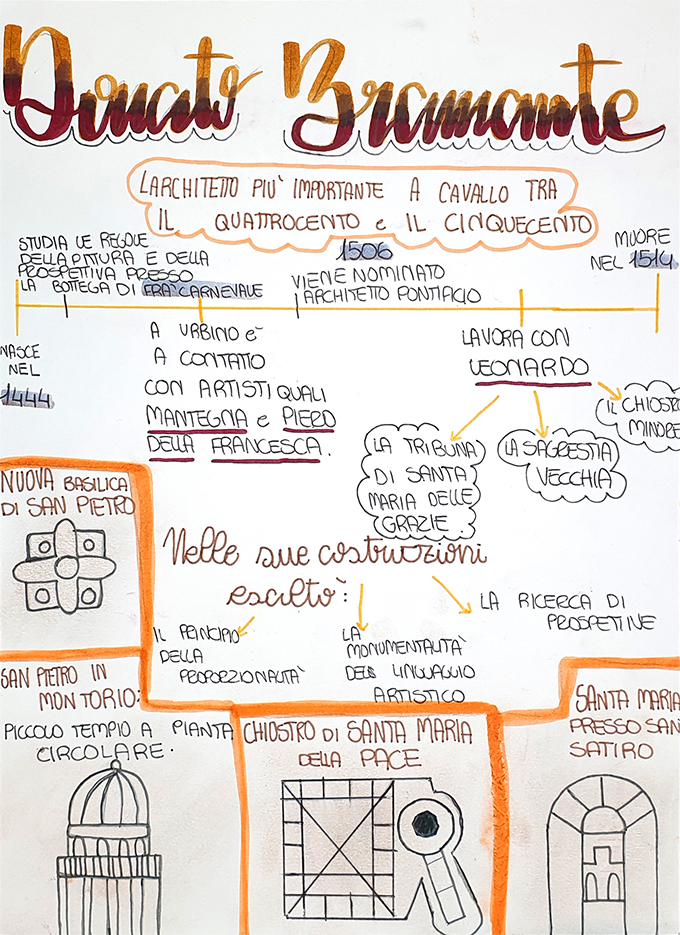 Donato Bramante
L'ARCHITETTO PIU' IMPORTANTE A CAVALLO TRA
IL QUATTROCENTO e IL CINQUECENTO
STUDIA LE REGOLE
DELLA PITTURA E DELLA
PROSPETTIVA PRESSO
LA BOTTEGA DI FRA' CARNEVALE
1506
VIENE NOMINATO
ARCHITETTO PONTIFICIO
MUORE
NEL 1514
NASCE
NEL
1444
A URBINO è
A CONTATO
CON ARTISTI QUALI
MANTEGNA e PIERO
DELLA FRANCESCA.
LAVORA CON
LEONARDO
LA TRIBUNA
DI SANTA
MARIA DELLE
GRAZIE.
LA SAGRESTIA
VECCHIA
IL CHIOSTRO
MINORE
NUOVA BASILICA
DI SAN PIETRO
Nelle sue costruzioni
IL PRINCIPIO
DELLA
PROPORZIONALITÀ
LA
MONUMENTALITÀ
DEL LINGUAGGIO
ARTISTICO
LA RICERCA DI
PROSPETINE
SAN PIETRO IN
MONTORIO:
PICCOLO TEMPIO A PIANTA
CIRCOLARE.
CHIOSTRO DI SANTA MARIA
DELLA PACE
SANTA MARIA
PRESSO SAN
SATIRO